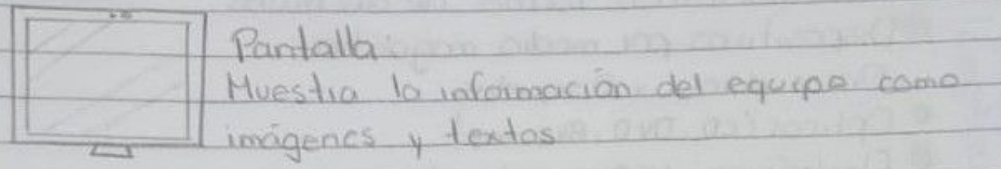 Pantalla
Muestra la información del equipo como
imágenes y textos